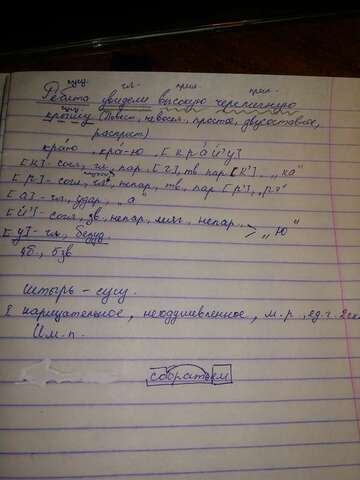 сущ. гл. прил. прил.
Ребята увидели высокую черепичную
крышу (Повест, невоскл, простое, двусоставное,
распрост)
краю, кра-ю, [край'у]
[к]- согл, гл, пар [г], тв, пар [к'], "ка"
[р]- согл, непар, тв, пар [р'], "рэ"
[а]- гл, удар, "а"
[й']- согл, зв, непар, мяг, непар > "Ю"
[у]- гл, безуд.
4б, 5зв
Штырь - сущ.
I нарицательное, неодушевленное, м.р., ед.ч. 2скл
Им.п.
собратьем